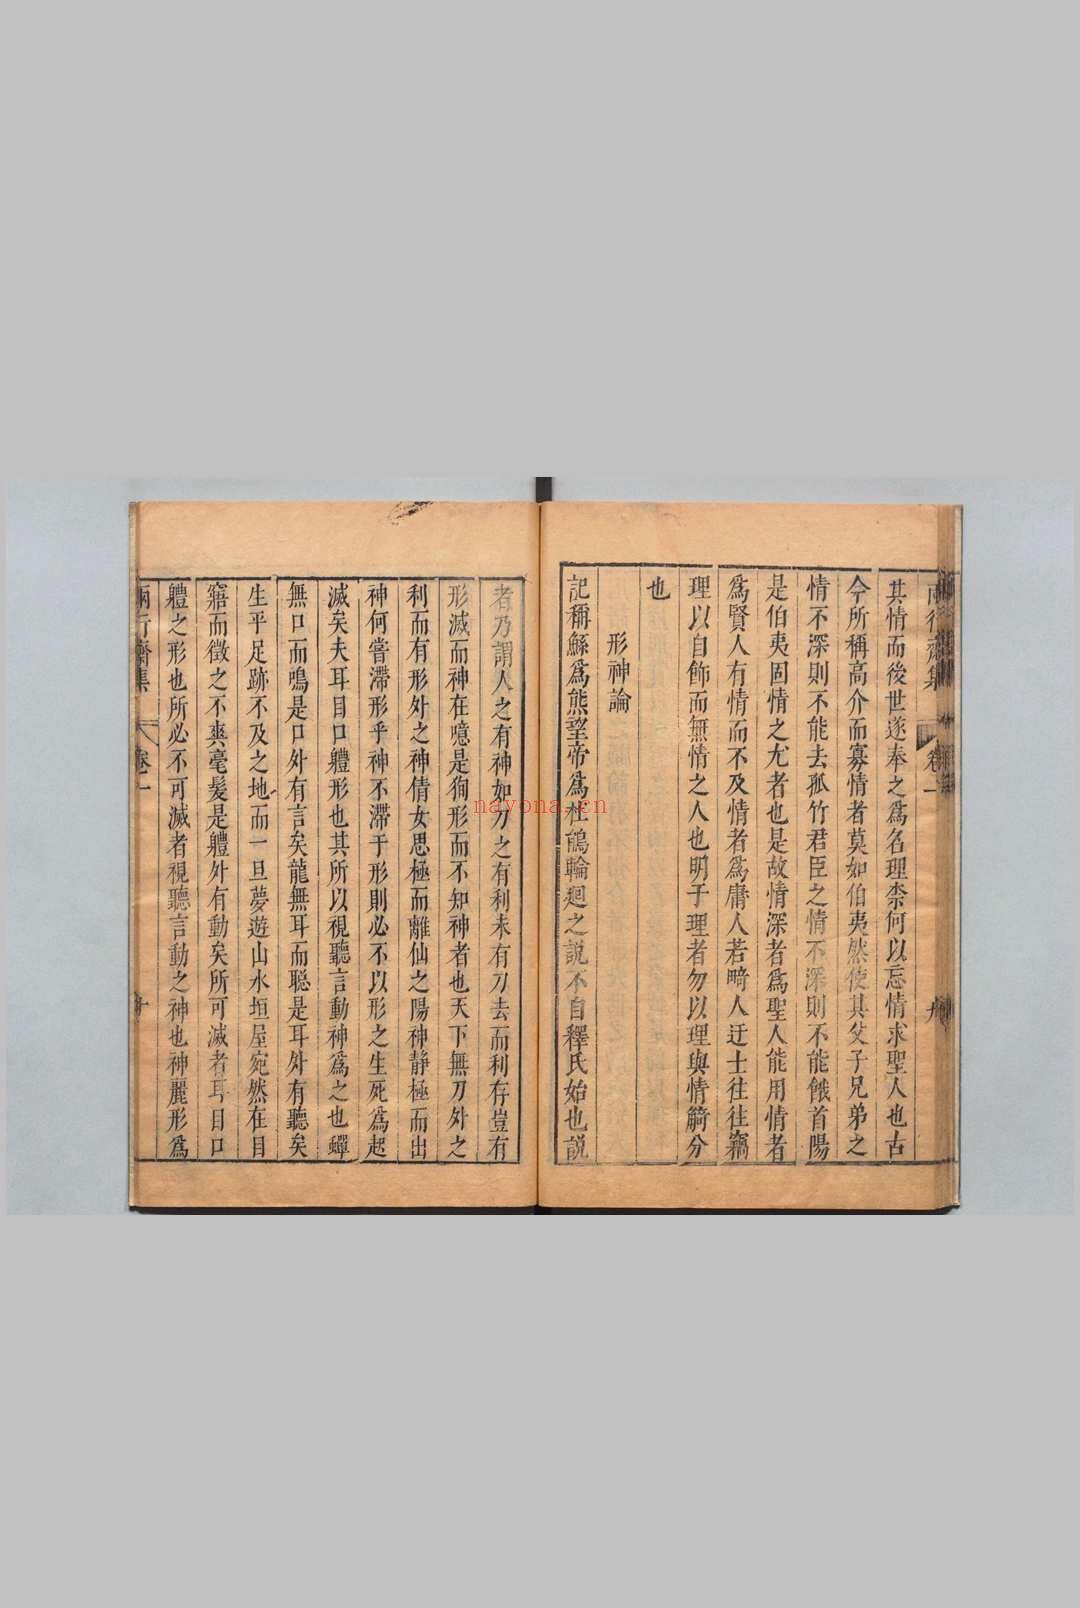 兩行齋集 卷一 九
其情而後世遂奉之爲名理柰何以忘情求聖人也古
今所稱高介而寡情者莫如伯夷然使其父子兄弟之
情不深則不能去孤竹君臣之情不深則不能餓首陽
是伯夷固情之尤者也是故情深者爲聖人能用情者
爲賢人有情而不及情者爲庸人若畸人迂士往往竊
理以自飾而無情之人也明于理者勿以理與情觭分
也
形神論
記稱鯀爲熊望帝爲杜鵑輪廻之說不自釋氏始也説
者乃謂人之有神如刀之有利未有刀去而利存豈有
形滅而神在噫是狥形而不知神者也天下無刀外之
利而有形外之神倩女思極而離仙之陽神静極而出
神何嘗滯形乎神不滯于形則必不以形之生死爲起
滅矣夫耳目口軆形也其所以視聽言動神爲之也蟬
無口而鳴是口外有言矣龍無耳而聪是耳外有聽矣
生平足跡不及之地而一旦夢遊山水垣屋宛然在目
寤而徵之不爽毫髮是軆外有動矣所可滅者耳目口
軆之形也所必不可滅者視聽言動之神也神麗形爲
兩行齋集 卷一 十
nayona.cn